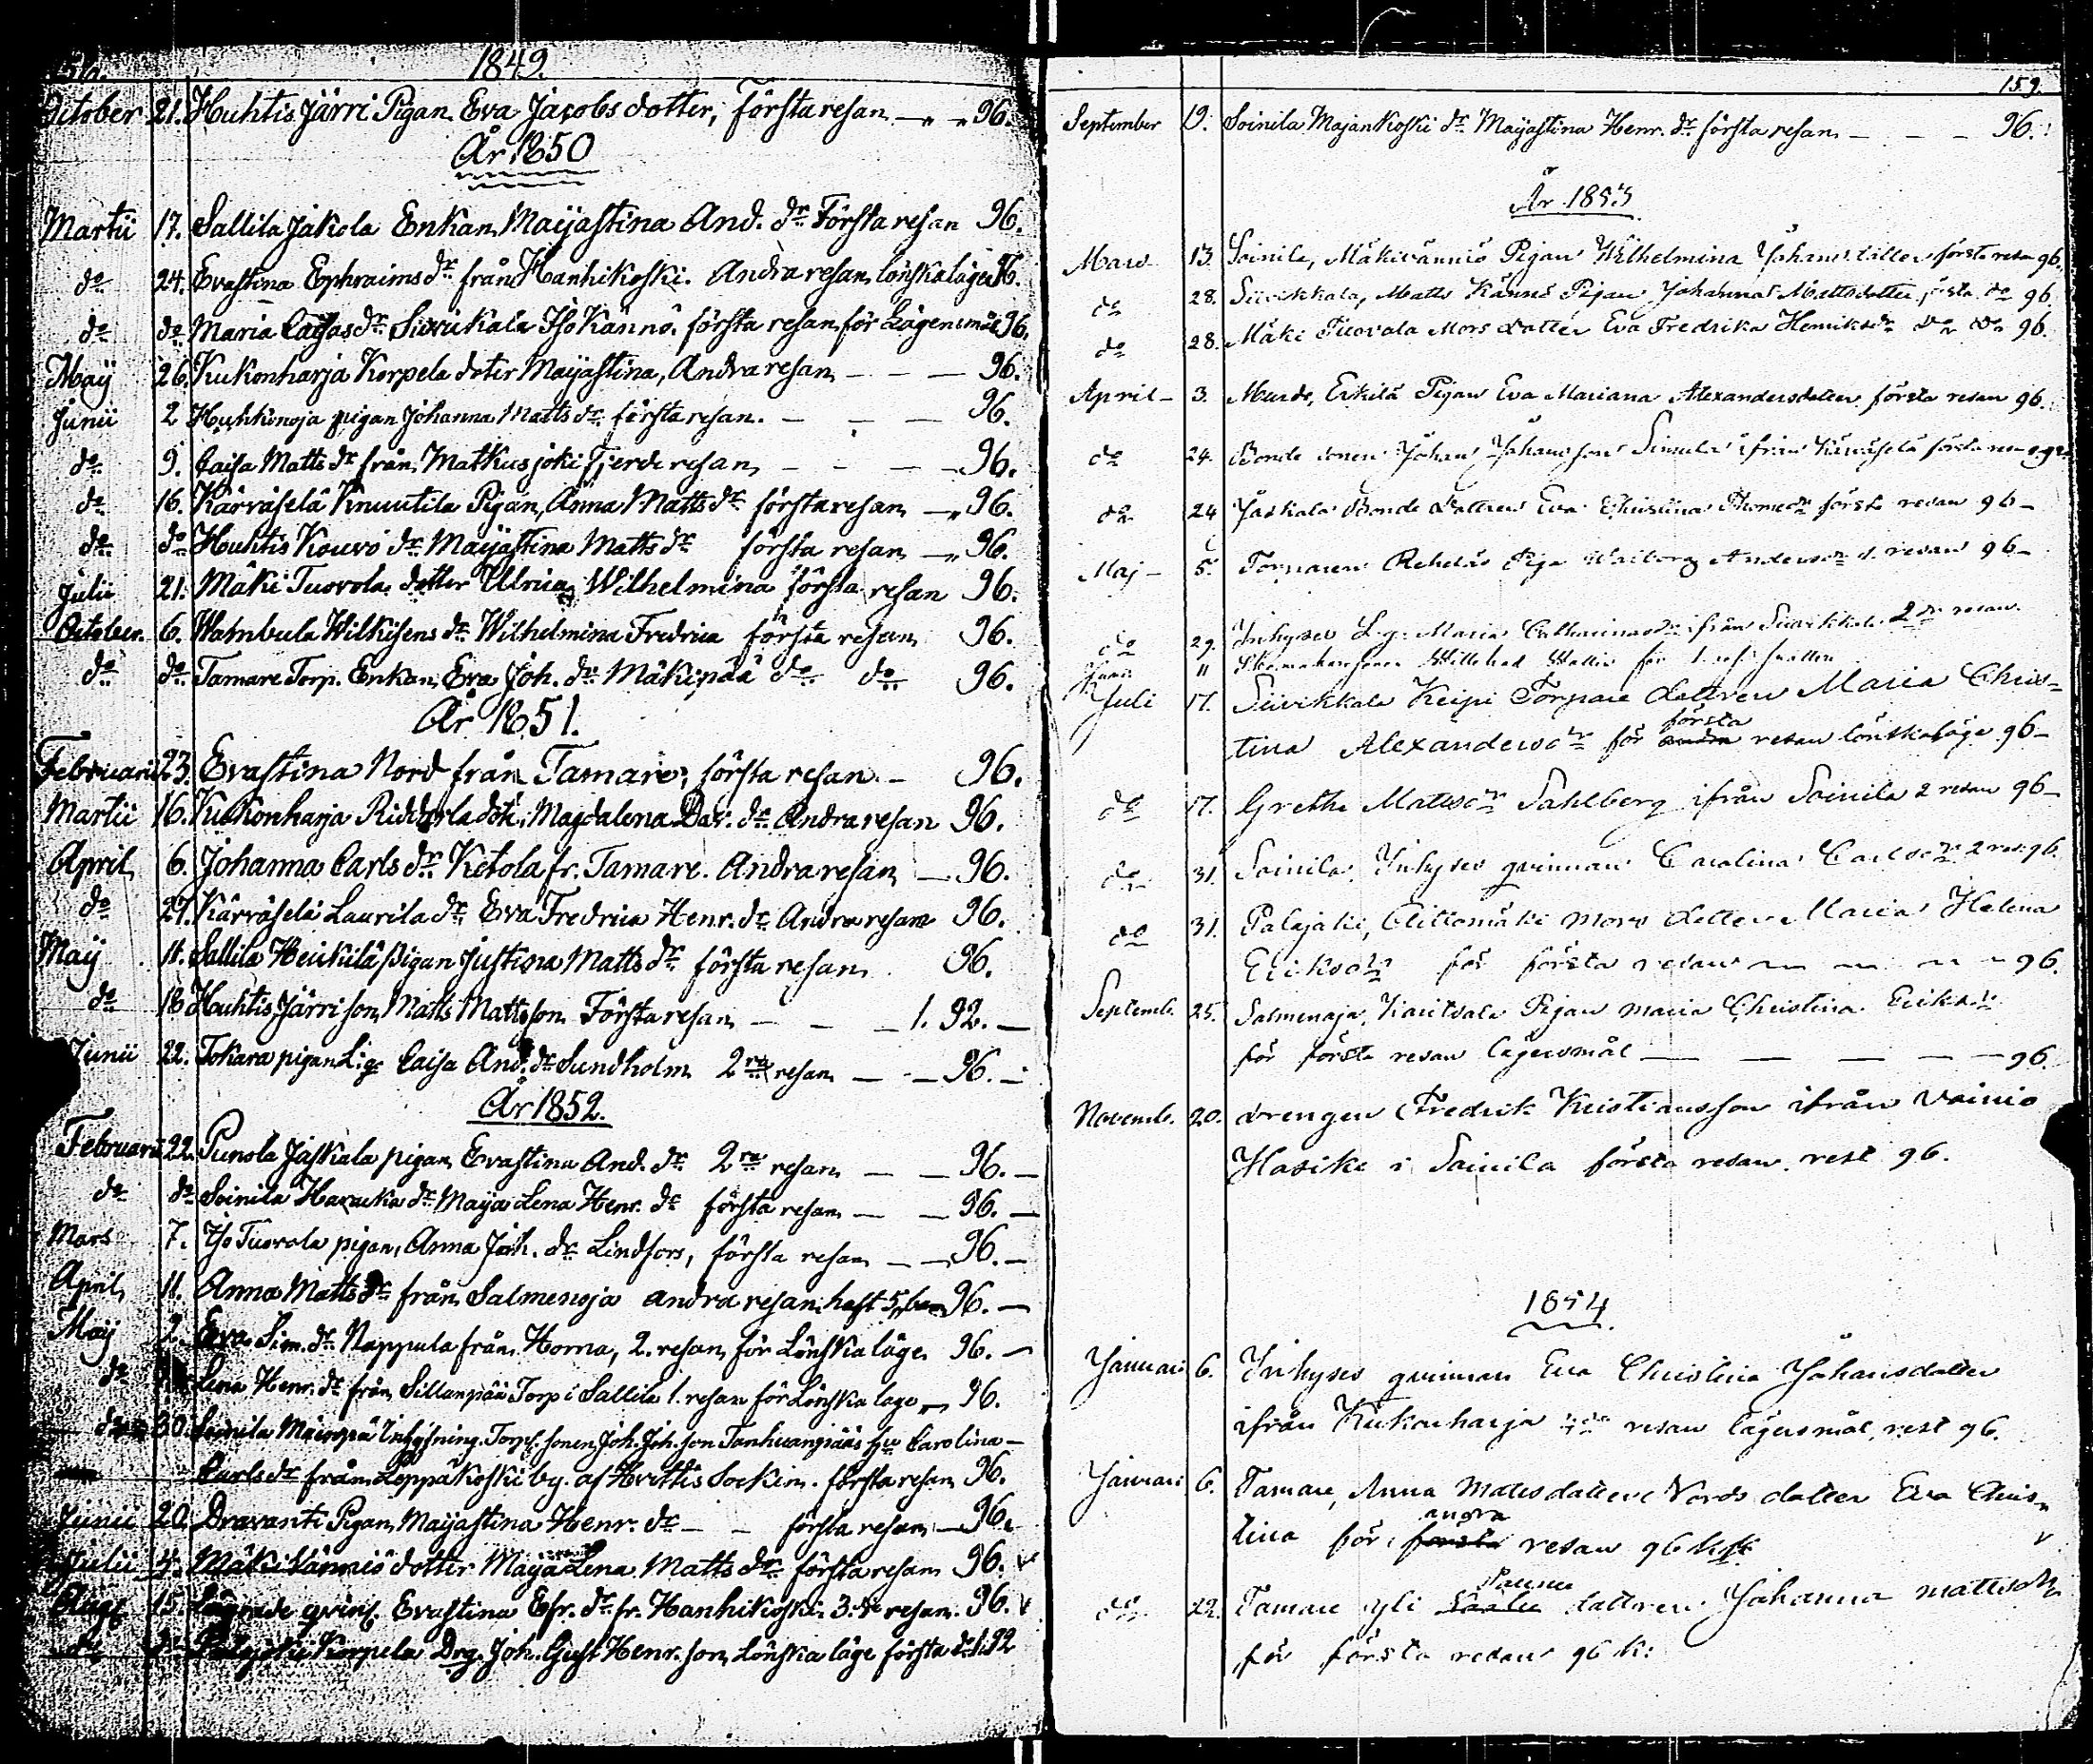 1849.
October 21. Huhtis Järri Pigan Eva Jacobs dotter, första resan — „ „ 96.
År 1850
Martii 17. Sallila Jakola Enkan Maijastina And. dr. Första resan 96.
do 24. Evastina Ephraims dr. från Hanhikoski. Andra resan lönskaläge 96.
do do Maria Cajsas dr. Suvikala Iso Kännö. första resan för Lägersmål 96.
Maij 26. Kukonharja Korpela doter Maijastina, Andra resan — — — 96.
Junii 2 Huhkionoja pigan Johanna Matts dr. första resan. — — — 96.
do 9. Caisa Matts dr från Matkusjoki Fjerde resan — — — 96.
do 16. Kärväselä Knuutila Pigan, Anna Matts dr. första resan — „ 96.
do do Huhtis Kouvo dr. Maijastina Matts dr första resan — „ 96.
Julii 21. Mäki Tuovola dotter Ulrica Wilhelmina första resan 96.
October. 6. Wambula Wilkisens dr. Wilhelmina Fredrica första resan 96.
do do Tamare Torp. Enkan, Eva Joh. dr. Mäkipää do do 96.
År 1851.
Februarii 23. Evastina Nord från Tamare, första resan. — 96.
Martii 16. Kukonharja Ridderla dott. Magdalena Dav. dr. Andra resan 96.
April 6. Johanna Carls dr. Ketola fr. Tamare. Andra resan — 96.
do 27. Kärväselä Laurila dr. Eva Fredrica Henr. dr. Andra resan 96.
Maij 11. Sallila Heikilä pigan Justina Matts dr. första resan 96.
do 18 Huhtis Järri son Matts Mattsson Första resan — — — 1. 92. —
Junii 22. Tokara pigan L:ge Caisa And. dr Sundholm 2ra resan — — 96. —
År 1852.
Februarii 22. Punola Jaskala pigan Evastina And. dr. 2ra resan — — 96. —
do do Soinila Haraka dr. Maija Lena Henr. dr första resan — — 96. —
Mars 7. Iso Tuovola pigan, Anna Joh. dr. Lindfors, första resan — — 96. —
April 11. Anna Matts dr från Salmenoja andra resan haft 5 barn 96. —
Maij 2. Eva Sim. dr. Nappula från Horna, 2. resan för Lönska läge 96. —
do Lena Henr. dr från Sillanpää Torp i Sallila 1. resan för Lönska läge „ 96.
do 30. Soinila Torp. sonen Joh. Joh. son Tanhuanpääs hu Carolina —
Carls dr från Leppäkoski by. af Hvittis Sockin. första resan 96.
Junii 20. Dravanti Pigan Maijastina Henr. dr. — — första resan — 96.
Julii 4. Mäkivänniö dotter Maija Lena Matts dr första resan 96. v
Aug. 15. Lägrade qvins. Evastina Efr. dr. fr. Hanhikoski 3:de resan. 96. v
do do Palojoki Korpela Drg. Joh. Gust Henr. son Lönska läge första do 1.92
159.
September 19. Soinila Majankoski dr. Maijastina Henr. dr första resan — — — 96.
År 1853
Mars 13. Soinila, Mäkivänniö Pigan Wilhelmina Johansdotter första resan 96.
do 28. Suvikkala, Matts Kännö Pigan Johanna Mattsdotter, första do 96.
do 28. Mäki Tuovola Mors dotter Eva Fredrika Henriksdr do do 96.
April — 3. Murdo, Erkilä Pigan Eva Mariana Alexandersdotter första resan 96.
do 24. Bonde sonen Johan Johansson Simula ifrån Kärväselä första
do 24 Jaskala Bonde dottren Eva Christina Thomasdr första resan 96 —
Maj — 5. Torparen Piga Walborg Andersdr 1. resan 96 —
do 29. Inhyses L.g. Maria Catharinadr ifrån Suvikkala 2dra resan
Juni 11 Willehad Wallin för 1.
Juli 17. Suvikkala Keipi Torpare dottren Maria Chris=
första
tina Alexandersdr för andra resan lönskaläge 96 —
do 17. Gretha Mattsdr Sahlberg ifrån Soinila 2 resan 96 —
do 31. Soinila Inhyses qvinnan Carolina Carlsdr 2 res. 96.
do 31. Palojoki, Alittomäki Mors dotter Maria Helena
Eriksdr för första resan — — — — 96.
Septemb. 25. Salmenoja, Karitsala Pigan Maria Christina Eriksdr
för första resan lägersmål — — — — 96.
Novemb. 20. drengen Fredrik Kristiansson ifrån Vainio
Hasike i Soinila första resan rest 96.
1854
Januari 6. Inhyses qvinnan Eva Christina Johansdotter
ifrån Kukonharja 4de resan lägersmål, rest 96.
Januari 6. Tamare, Anna Mattsdotters Nords dotter Eva Chris„
andra
tina för första resan 96 kpk v
do 22. Tamare yli dottren Johanna Mattsdr
för första resan 96 k: